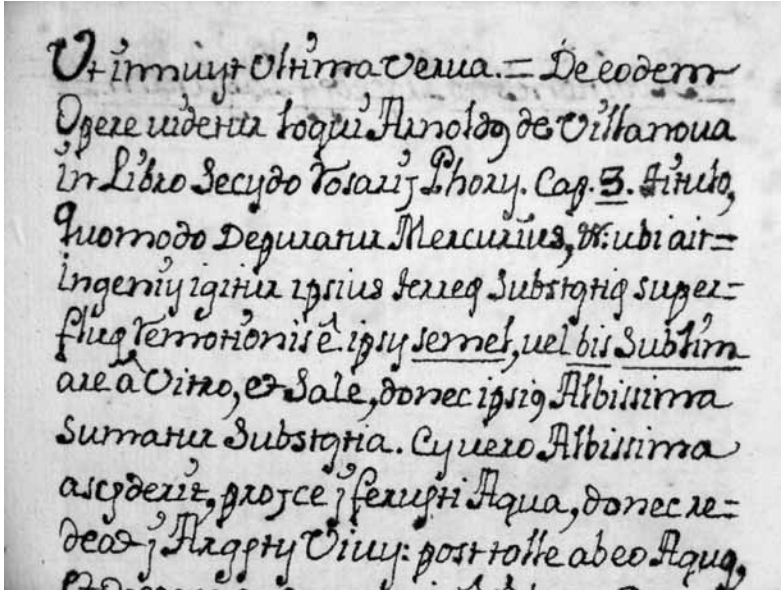 Ut innuyt Ultima Verua. = De eodem
Opere uidetur loqui Arnoldg de Villanova
in Libro Secydo Rosarij Phory. Cap. 3. titulo,
Quomodo Depuratur Mercurius, &: ubi ait=
ingeniy igitur ipsius terreę Substątię super=
fluę remotionis ê ipsy semel, uel bis Sublim
are â Vitro, et Sale, donec ipsig Albissima
Sumatur Substątia. Cy uero Albissima
ascęderit, projce j feruęti Aqua, donec re=
deat j Argęty Viuy: post tolle ab eo Aquą,